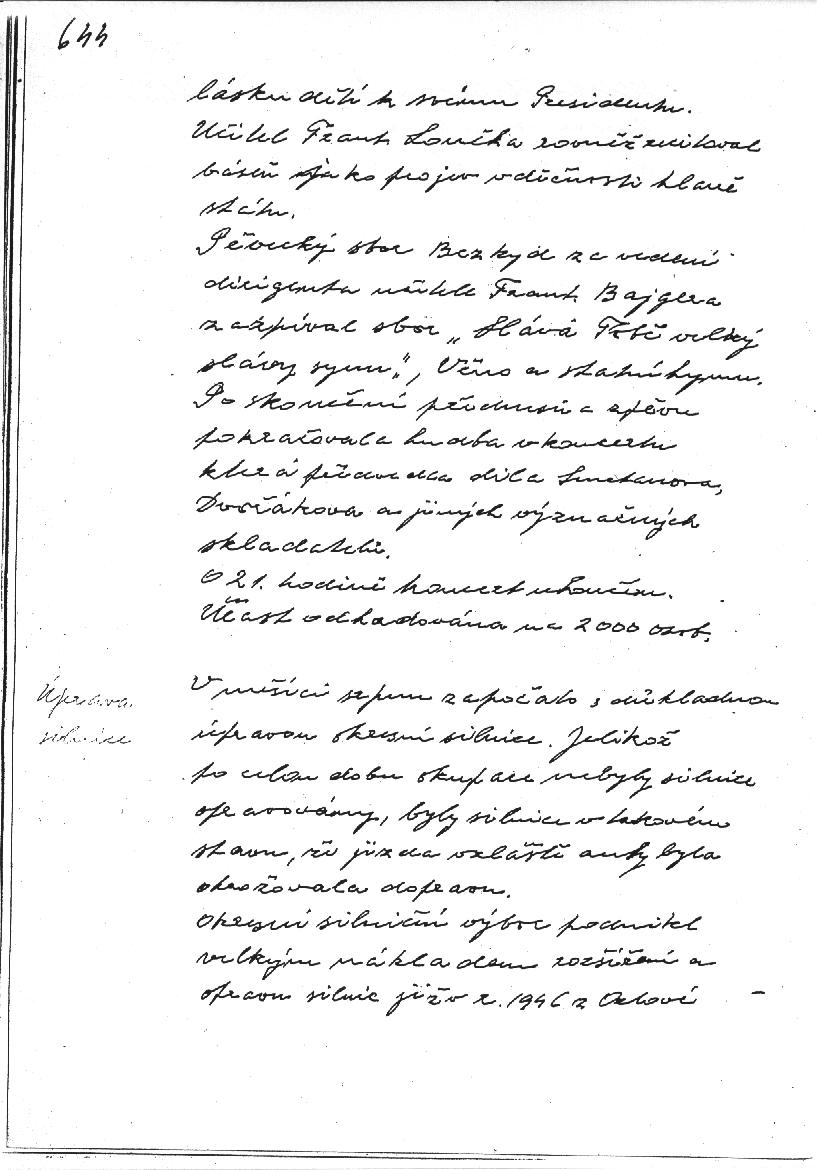 644
lásku dětí k svému Presidentu.
Učitel Frant. Loučka rovněž recitoval
báseň jako projev vděčnosti hlavě
státu.
Pěvecký sbor Bezkyd za vedení
dirigenta učitele Frant. Bajgera
zazpíval sbor „Sláva Tobě velký
slávy synu", Věno a státní hymnu.
Po skončení přednesů a zpěvu
pokračovala hudba v koncertu
která předvedla díla Smetanova,
Dvořákova a jiných význačných
skladatelů.
O 21. hodině koncert ukončen.
Účast odhadována na 2000 osob.
Úprava
silnice
V měsíci srpnu započato s důkladnou
úpravou okresní silnice. Jelikož
po celou dobu okupace nebyly silnice
opravovány, byly silnice v takovém
stavu, že jízda vzláště auty byla
ohrožovala dopravu.
Okresní silniční výbor podnikl
velkým nákladem rozšíření a
opravu silnic již v r. 1946 z Orlové